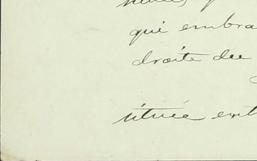 qui embra
droite du
située ent